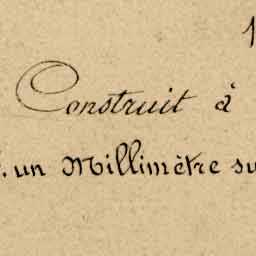 Construit à
. un Millimètre su